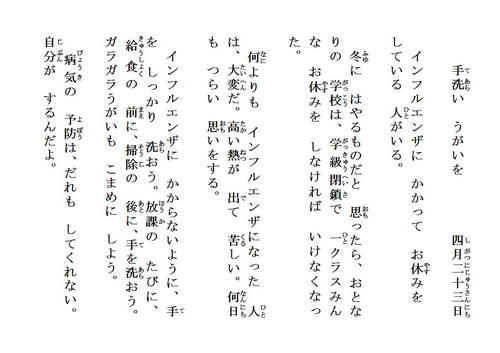 手洗い うがいを 四月二十三日
インフルエンザに かかって お休みを
している 人がいる。
冬に はやるものだと 思ったら、おとな
りの 学校は、学級閉鎖で 一クラスみん
な お休みを しなければ いけなくなっ
た。
何よりも インフルエンザになった 人
は、大変だ。高い熱が 出て 苦しい。何日
も つらい 思いをする。
インフルエンザに かからないように、手
を しっかり 洗おう。放課の たびに、
給食の 前に、掃除の 後に、手を洗おう。
ガラガラうがいも こまめに しよう。
病気の 予防は、だれも してくれない。
自分が するんだよ。